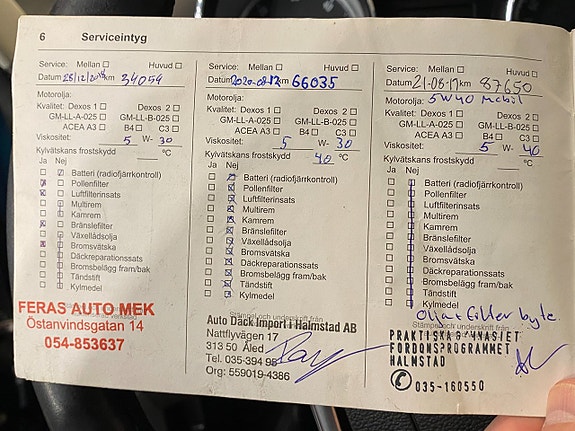 6 Serviceintyg
Service: Mellan Huvud
Datum 28/12/2018 km 34059
Motorolja:
Kvalitet: Dexos 1 Dexos 2
GM-LL-A-025 GM-LL-B-025
ACEA A3 B4 C3
Viskositet: 5 W- 30
Kylvätskans frostskydd °C
Ja Nej
Batteri (radiofjärrkontroll)
Pollenfilter
Luftfilterinsats
Multirem
Kamrem
Bränslefilter
Växellådsolja
Bromsvätska
Däckreparationssats
Bromsbelägg fram/bak
Tändstift
Kylmedel
FERAS AUTO MEK
Östanvindsgatan 14
054-853637
Service: Mellan Huvud
Datum 2020-08-12 km 66035
Motorolja:
Kvalitet: Dexos 1 Dexos 2
GM-LL-A-025 GM-LL-B-025
ACEA A3 B4 C3
Viskositet: 5 W- 30
Kylvätskans frostskydd 40 °C
Ja Nej
Batteri (radiofjärrkontroll)
Pollenfilter
Luftfilterinsats
Multirem
Kamrem
Bränslefilter
Växellådsolja
Bromsvätska
Däckreparationssats
Bromsbelägg fram/bak
Tändstift
Kylmedel
Stämpel och underskrift från
Auto Däck Import i Halmstad AB
Nattflyvägen 17
313 50 Åled
Tel. 035-394 95
Org: 559019-4386
Service: Mellan Huvud
Datum 21-08-17 km 87650
Motorolja: 5W40 Mobil
Kvalitet: Dexos 1 Dexos 2
GM-LL-A-025 GM-LL-B-025
ACEA A3 B4 C3
Viskositet: 5 W- 40
Kylvätskans frostskydd °C
Ja Nej
Batteri (radiofjärrkontroll)
Pollenfilter
Luftfilterinsats
Multirem
Kamrem
Bränslefilter
Växellådsolja
Bromsvätska
Däckreparationssats
Bromsbelägg fram/bak
Tändstift
Kylmedel
Olja+filter byte
Stämpel och underskrift från
PRAKTISKA GYMNASIET
FORDONSPROGRAMMET
HALMSTAD
035-160550